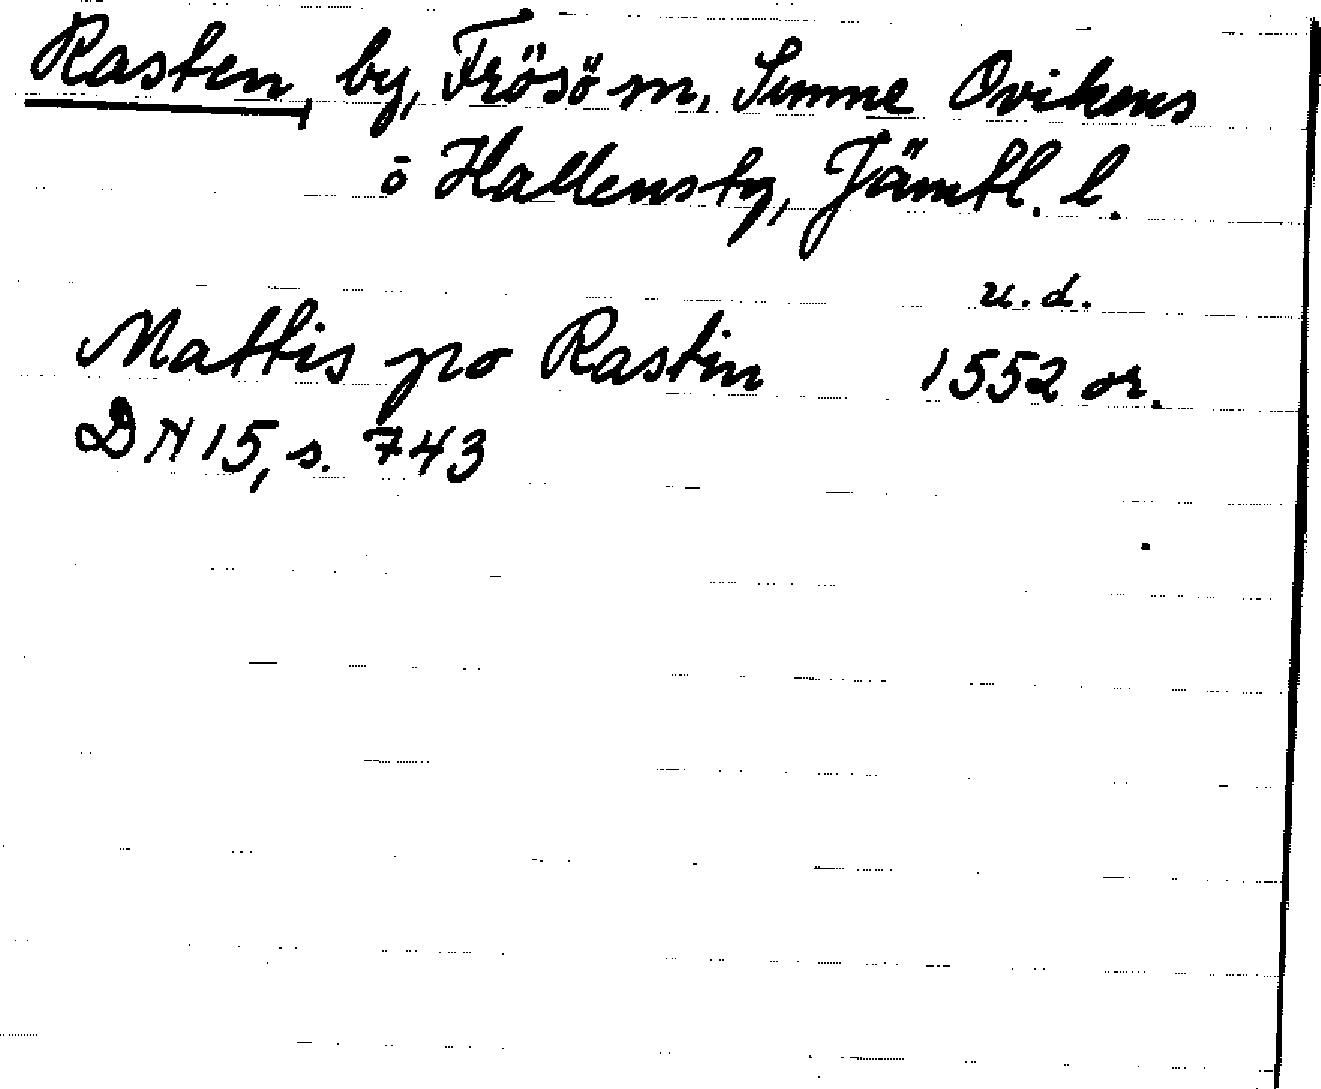 Rasten, by, Frösö sn, Sunne Ovikens
o Hallens tg, Jämtl. l.
u. d.
Mattis po Rastin 1552 or.
DN 15, s. 743